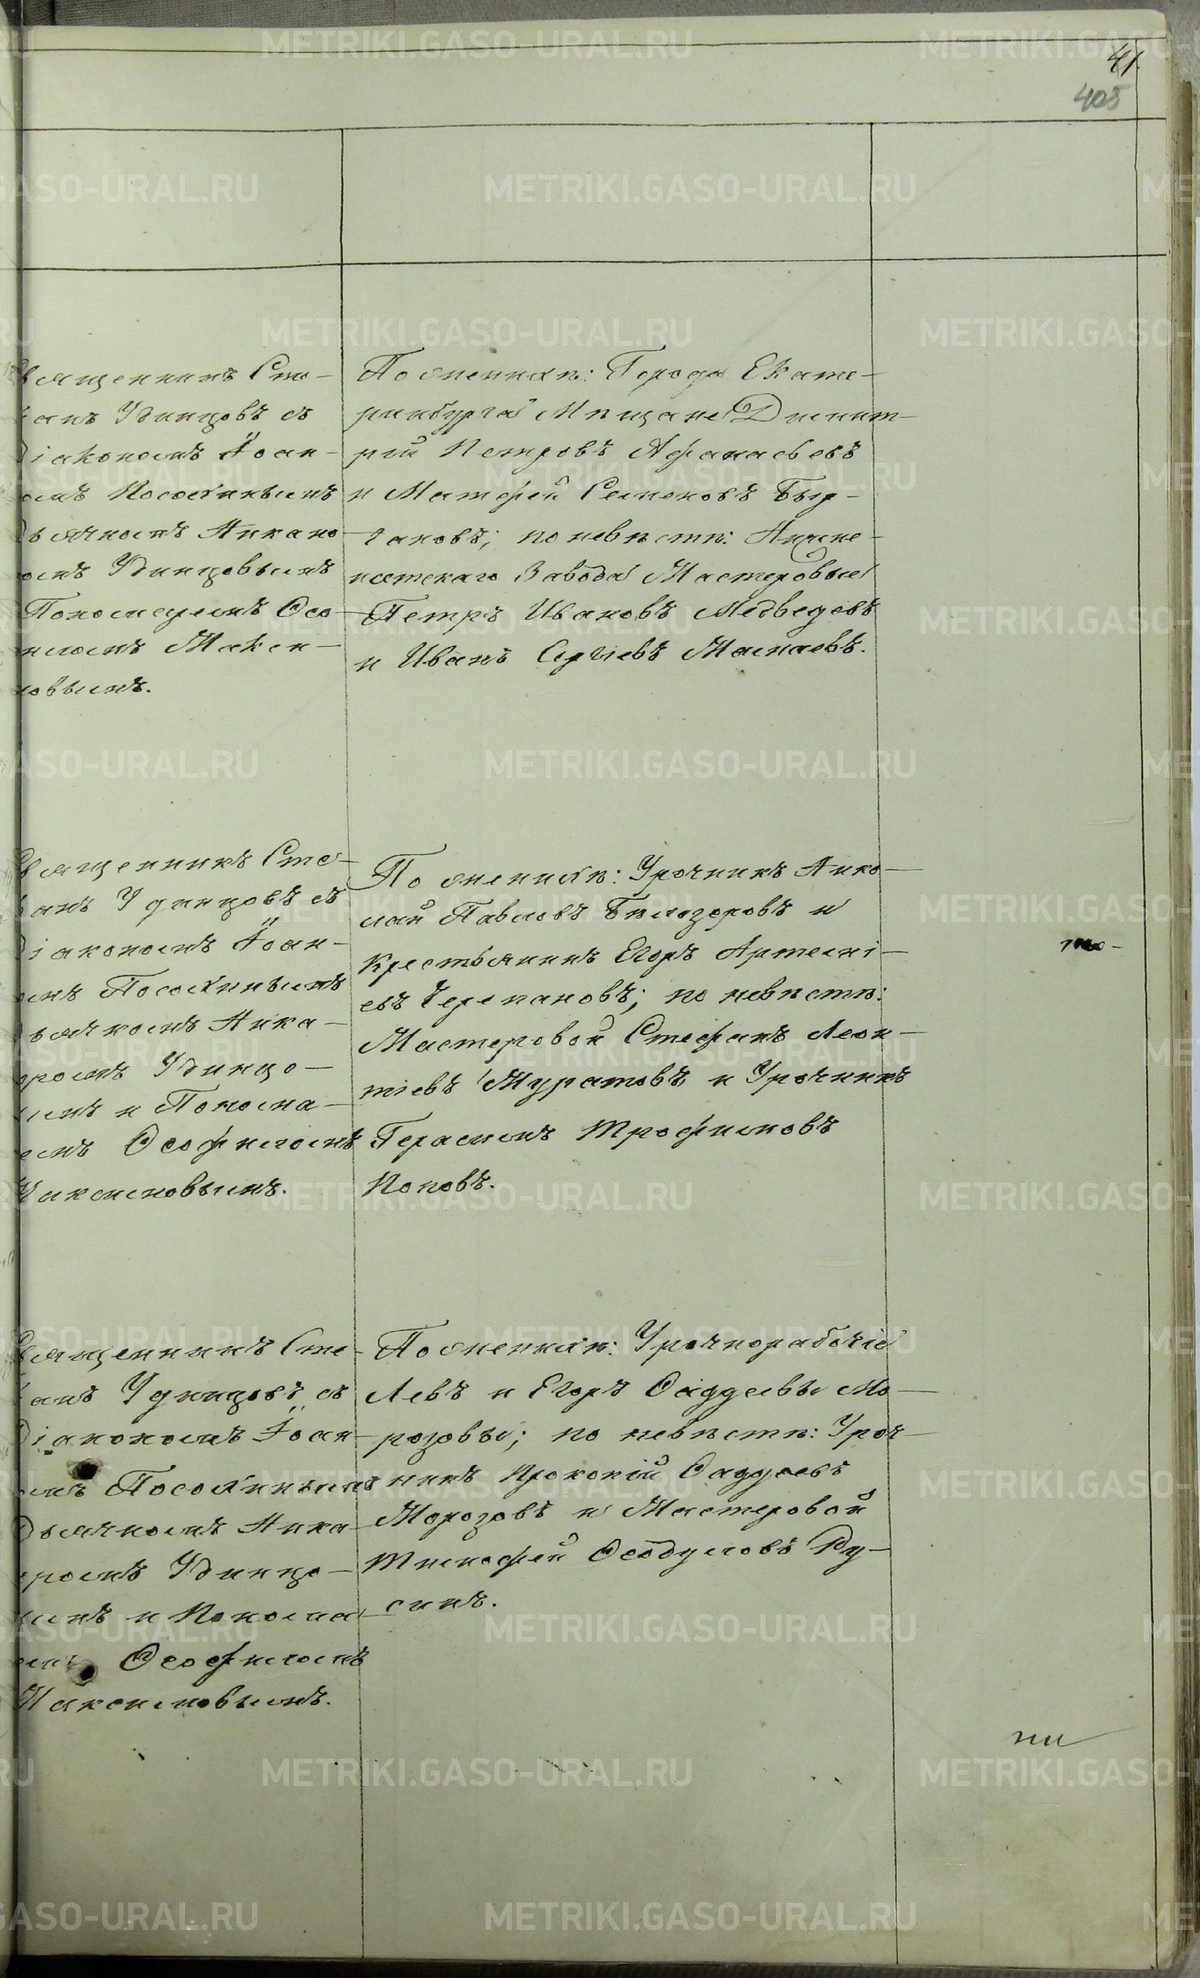 41.
405
вященникъ Сте-
анъ Удинцовъ съ
діакономъ Іоан-
омъ Посохинымъ
ьячкомъ Никано-
омъ Удинцовымъ
Пономаремъ Ѳео-
иломъ Макси-
овымъ.
По женихѣ: Города Екате-
ринбурга Мѣщане Димит-
рій Петровъ Аѳанасьевъ
и Матфей Семеновъ
по невѣстѣ:
Завода Мастеровые
Петръ Ивановъ Медведевъ
и Иванъ Сергіевъ
вященникъ Сте-
анъ Удинцовъ съ
діакономъ Іоан-
омъ Посохинымъ
ьячкомъ Ника-
ромъ Удинцо-
ымъ и Понома-
емъ Ѳеофиломъ
Максимовымъ.
По женихѣ: Урочникъ Нико-
лай Павловъ Бѣлозеровъ и
Крестьянинъ Егоръ Артемі-
евъ Черепановъ; по невѣстѣ:
Мастеровой Стефанъ Леон-
тіевъ Муратовъ и Урочникъ
Герасимъ Трофимовъ
Поповъ.
вященникъ Сте-
анъ Удинцовъ съ
діакономъ Іоан-
омъ Посохинымъ
Дьячкомъ Ника-
ромъ Удинцо-
ымъ и Понома-
емъ Ѳеофиломъ
Максимовымъ.
По женихѣ: Урочнорабочіе
Левъ и Егоръ Ѳаддеевы Мо-
розовы; по невѣстѣ: Уроч-
никъ Прокопій Ѳаддеевъ
Морозовъ и Мастеровой
Тимофей Ѳеодуловъ Ру-
синъ.
METRIKI.GASO-URAL.RU